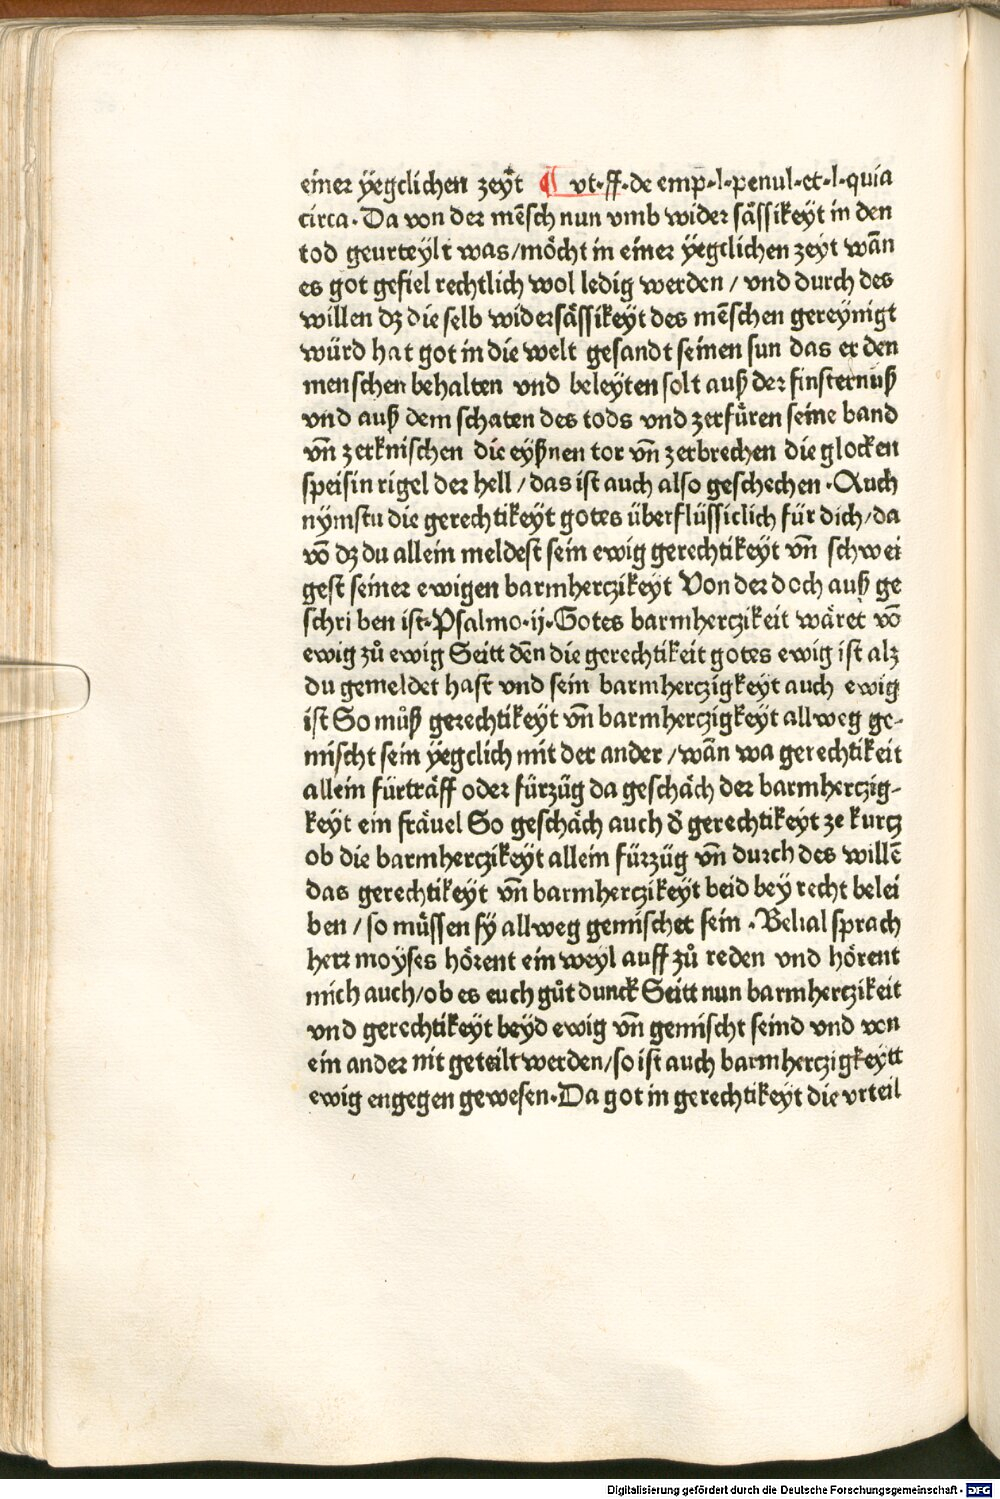 einer yegclichen zeyt ¶ vt·ff·de emp·l·penul·et·l·quia
circa·Da von der mēsch nun vmb wider sässikeyt in den
tod geurteylt was/möcht in einer yegclichen zeyt wān
es got gefiel rechtlich wol ledig werden/vnd durch des
willen dz die selb widersässikeyt des mēschen gereynigt
würd hat got in die welt gesandt seinen sun das er den
menschen behalten vnd beleyten solt auß der finsternuß
vnd auß dem schaten des tods vnd zerfüren seine band
vn̄ zerknischen die eyßnen tor vn̄ zerbrechen die glocken
speisin rigel der hell/das ist auch also geschechen·Auch
nymstu die gerechtikeyt gotes überflüssiclich für dich/da
vō dz du allein meldest sein ewig gerechtikeyt vn̄ schwei
gest seiner ewigen barmherczikeyt Von der doch auß ge
schri ben ist·Psalmo·ij·Gotes barmherczikeit wäret vō
ewig zů ewig Seitt dēn die gerechtikeit gotes ewig ist alz
du gemeldet hast vnd sein barmherczigkeyt auch ewig
ist So můß gerechtikeyt vn̄ barmherczigkeyt allweg ge-
mischt sein yegclich mit der ander/wān wa gerechtikeit
allein fürträff oder fürzüg da geschäch der barmherczig-
keyt ein fräuel So geschäch auch d̄ gerechtikeyt ze kurcz
ob die barmherczikeyt allein fürzüg vn̄ durch des willē
das gerechtikeyt vn̄ barmherczikeyt beid bey recht belei
ben/so müssen sy allweg gemischet sein·Belial sprach
herr moyses hörent ein weyl auff zů reden vnd hörent
mich auch/ob es euch gůt dunck Seitt nun barmherczikeit
vnd gerechtikeyt beyd ewig vn̄ gemischt seind vnd von
ein ander nit geteilt werden/so ist auch barmherczigkeytt
ewig engegen gewesen·Da got in gerechtikeyt die vrteil
Digitalisierung gefördert durch die Deutsche Forschungsgemeinschaft - DFG